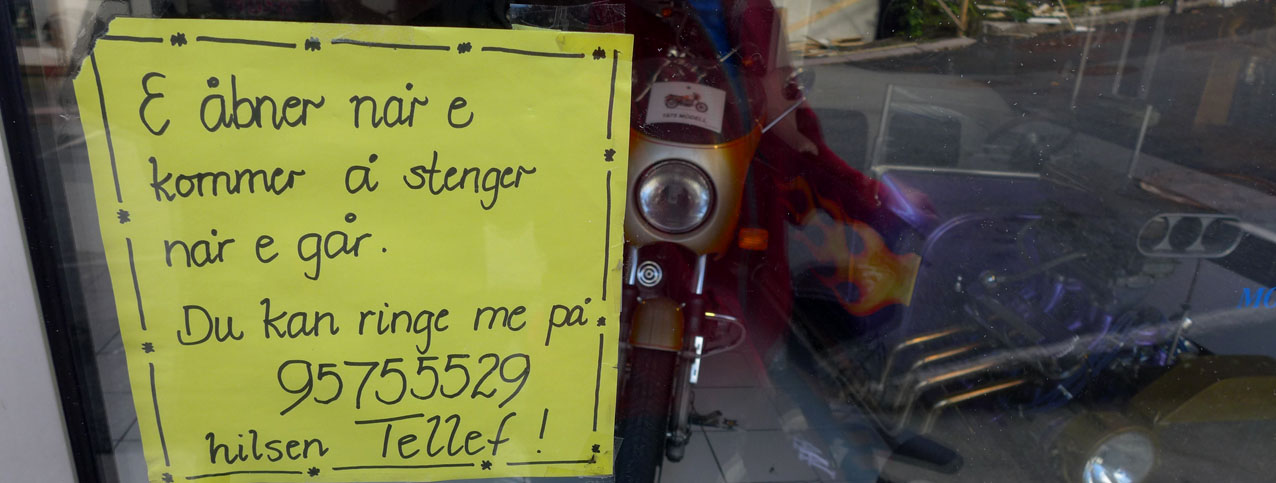 E åbner når e
kommer å stenger
når e går.
Du kan ringe me på
95755529
hilsen Tellef!
1978 MODELL